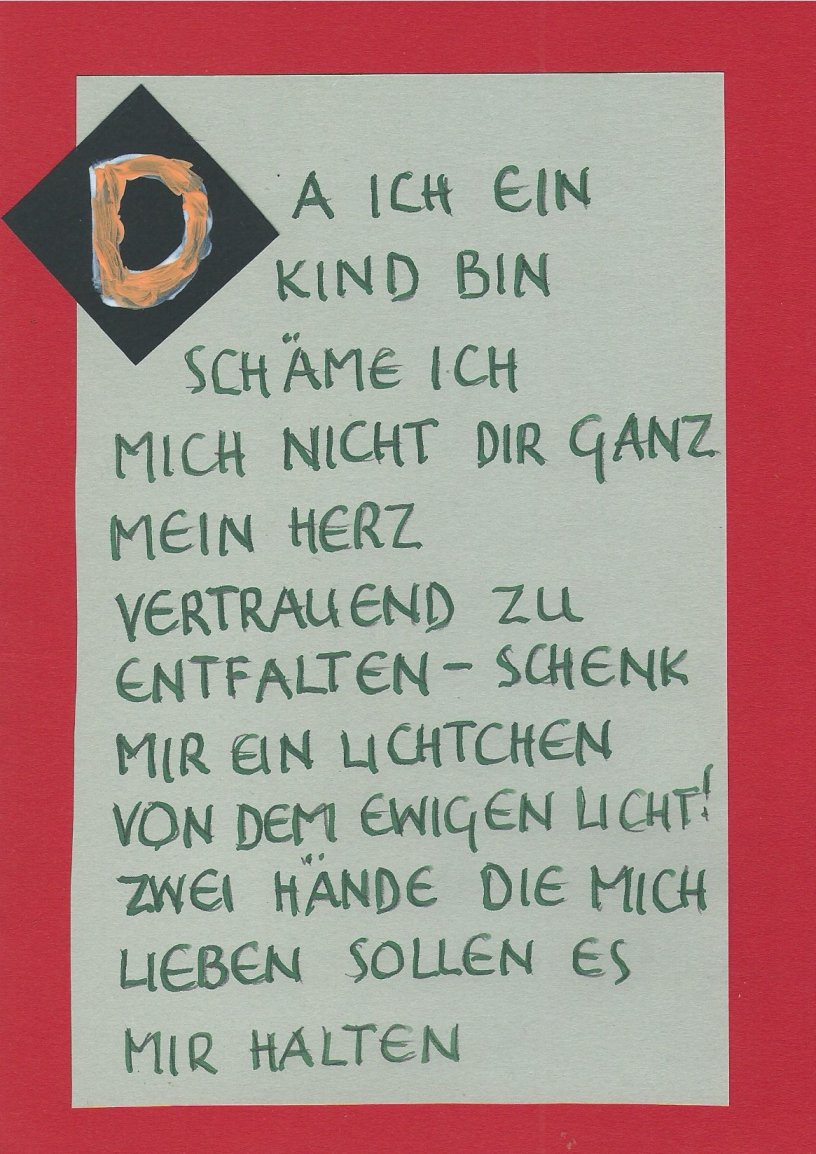 DA ICH EIN
KIND BIN
SCHÄME ICH
MICH NICHT DIR GANZ
MEIN HERZ
VERTRAUEND ZU
ENTFALTEN – SCHENK
MIR EIN LICHTCHEN
VON DEM EWIGEN LICHT!
ZWEI HÄNDE DIE MICH
LIEBEN SOLLEN ES
MIR HALTEN